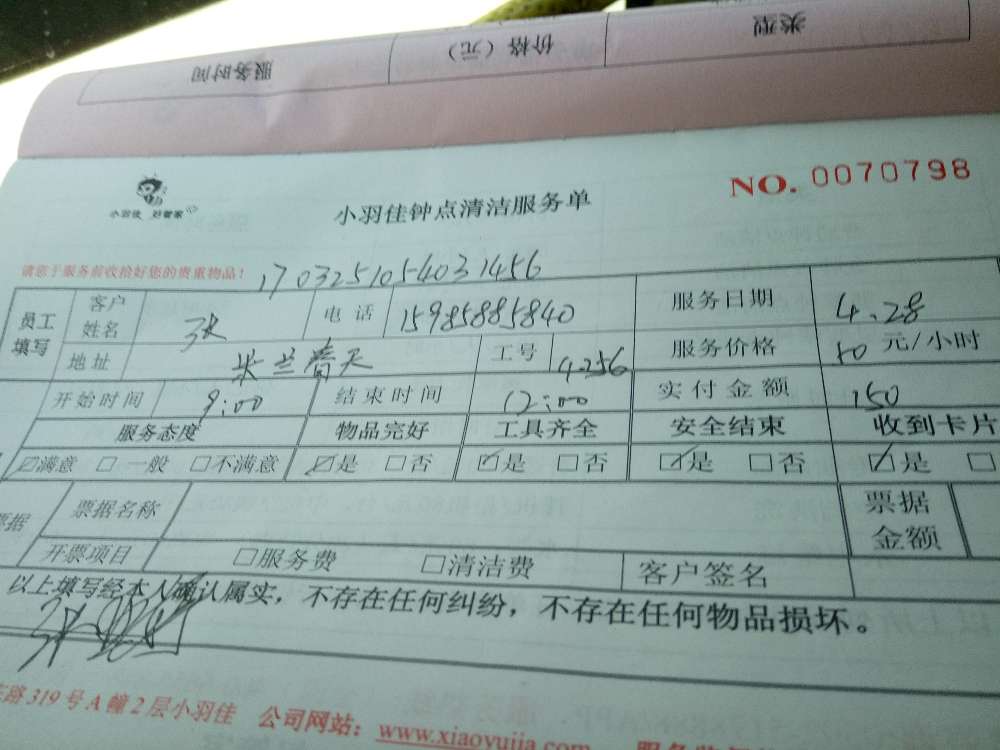 服务时间 价格（元） 类型
NO. 0070798
小羽佳 好管家
小羽佳钟点清洁服务单
请您于服务前收拾好您的贵重物品！ 1703251054031456
员工填写 客户姓名 张 电话 15985885840 服务日期 4.28
地址 米兰春天 工号 4256 服务价格 50 元/小时
开始时间 9:00 结束时间 12:00 实付金额 150
服务态度 物品完好 工具齐全 安全结束 收到卡片
☑满意 □一般 □不满意 ☑是 □否 ☑是 □否 ☑是 □否 ☑是 □
票据 票据名称 票据金额
开票项目 □服务费 □清洁费 客户签名
以上填写经本人确认属实，不存在任何纠纷，不存在任何物品损坏。
张
路319号A幢2层小羽佳 公司网站：www.xiaoyujia.com